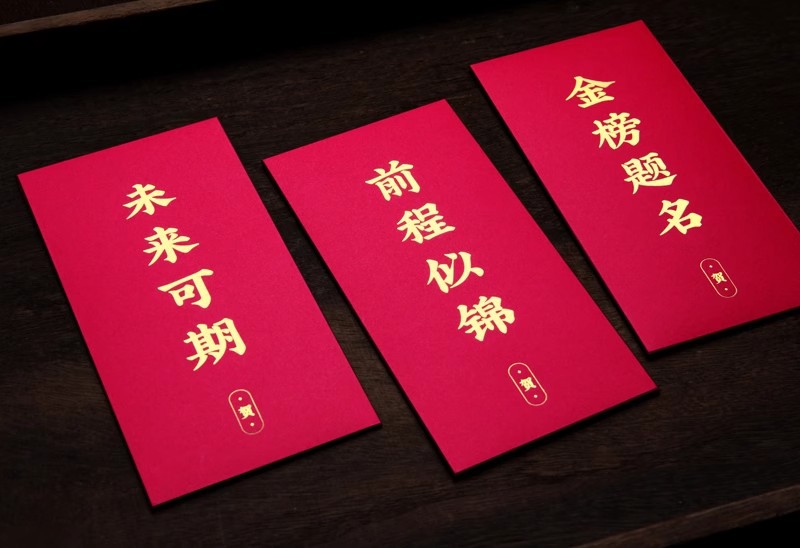 未来可期
贺
前程似锦
贺
金榜题名
贺